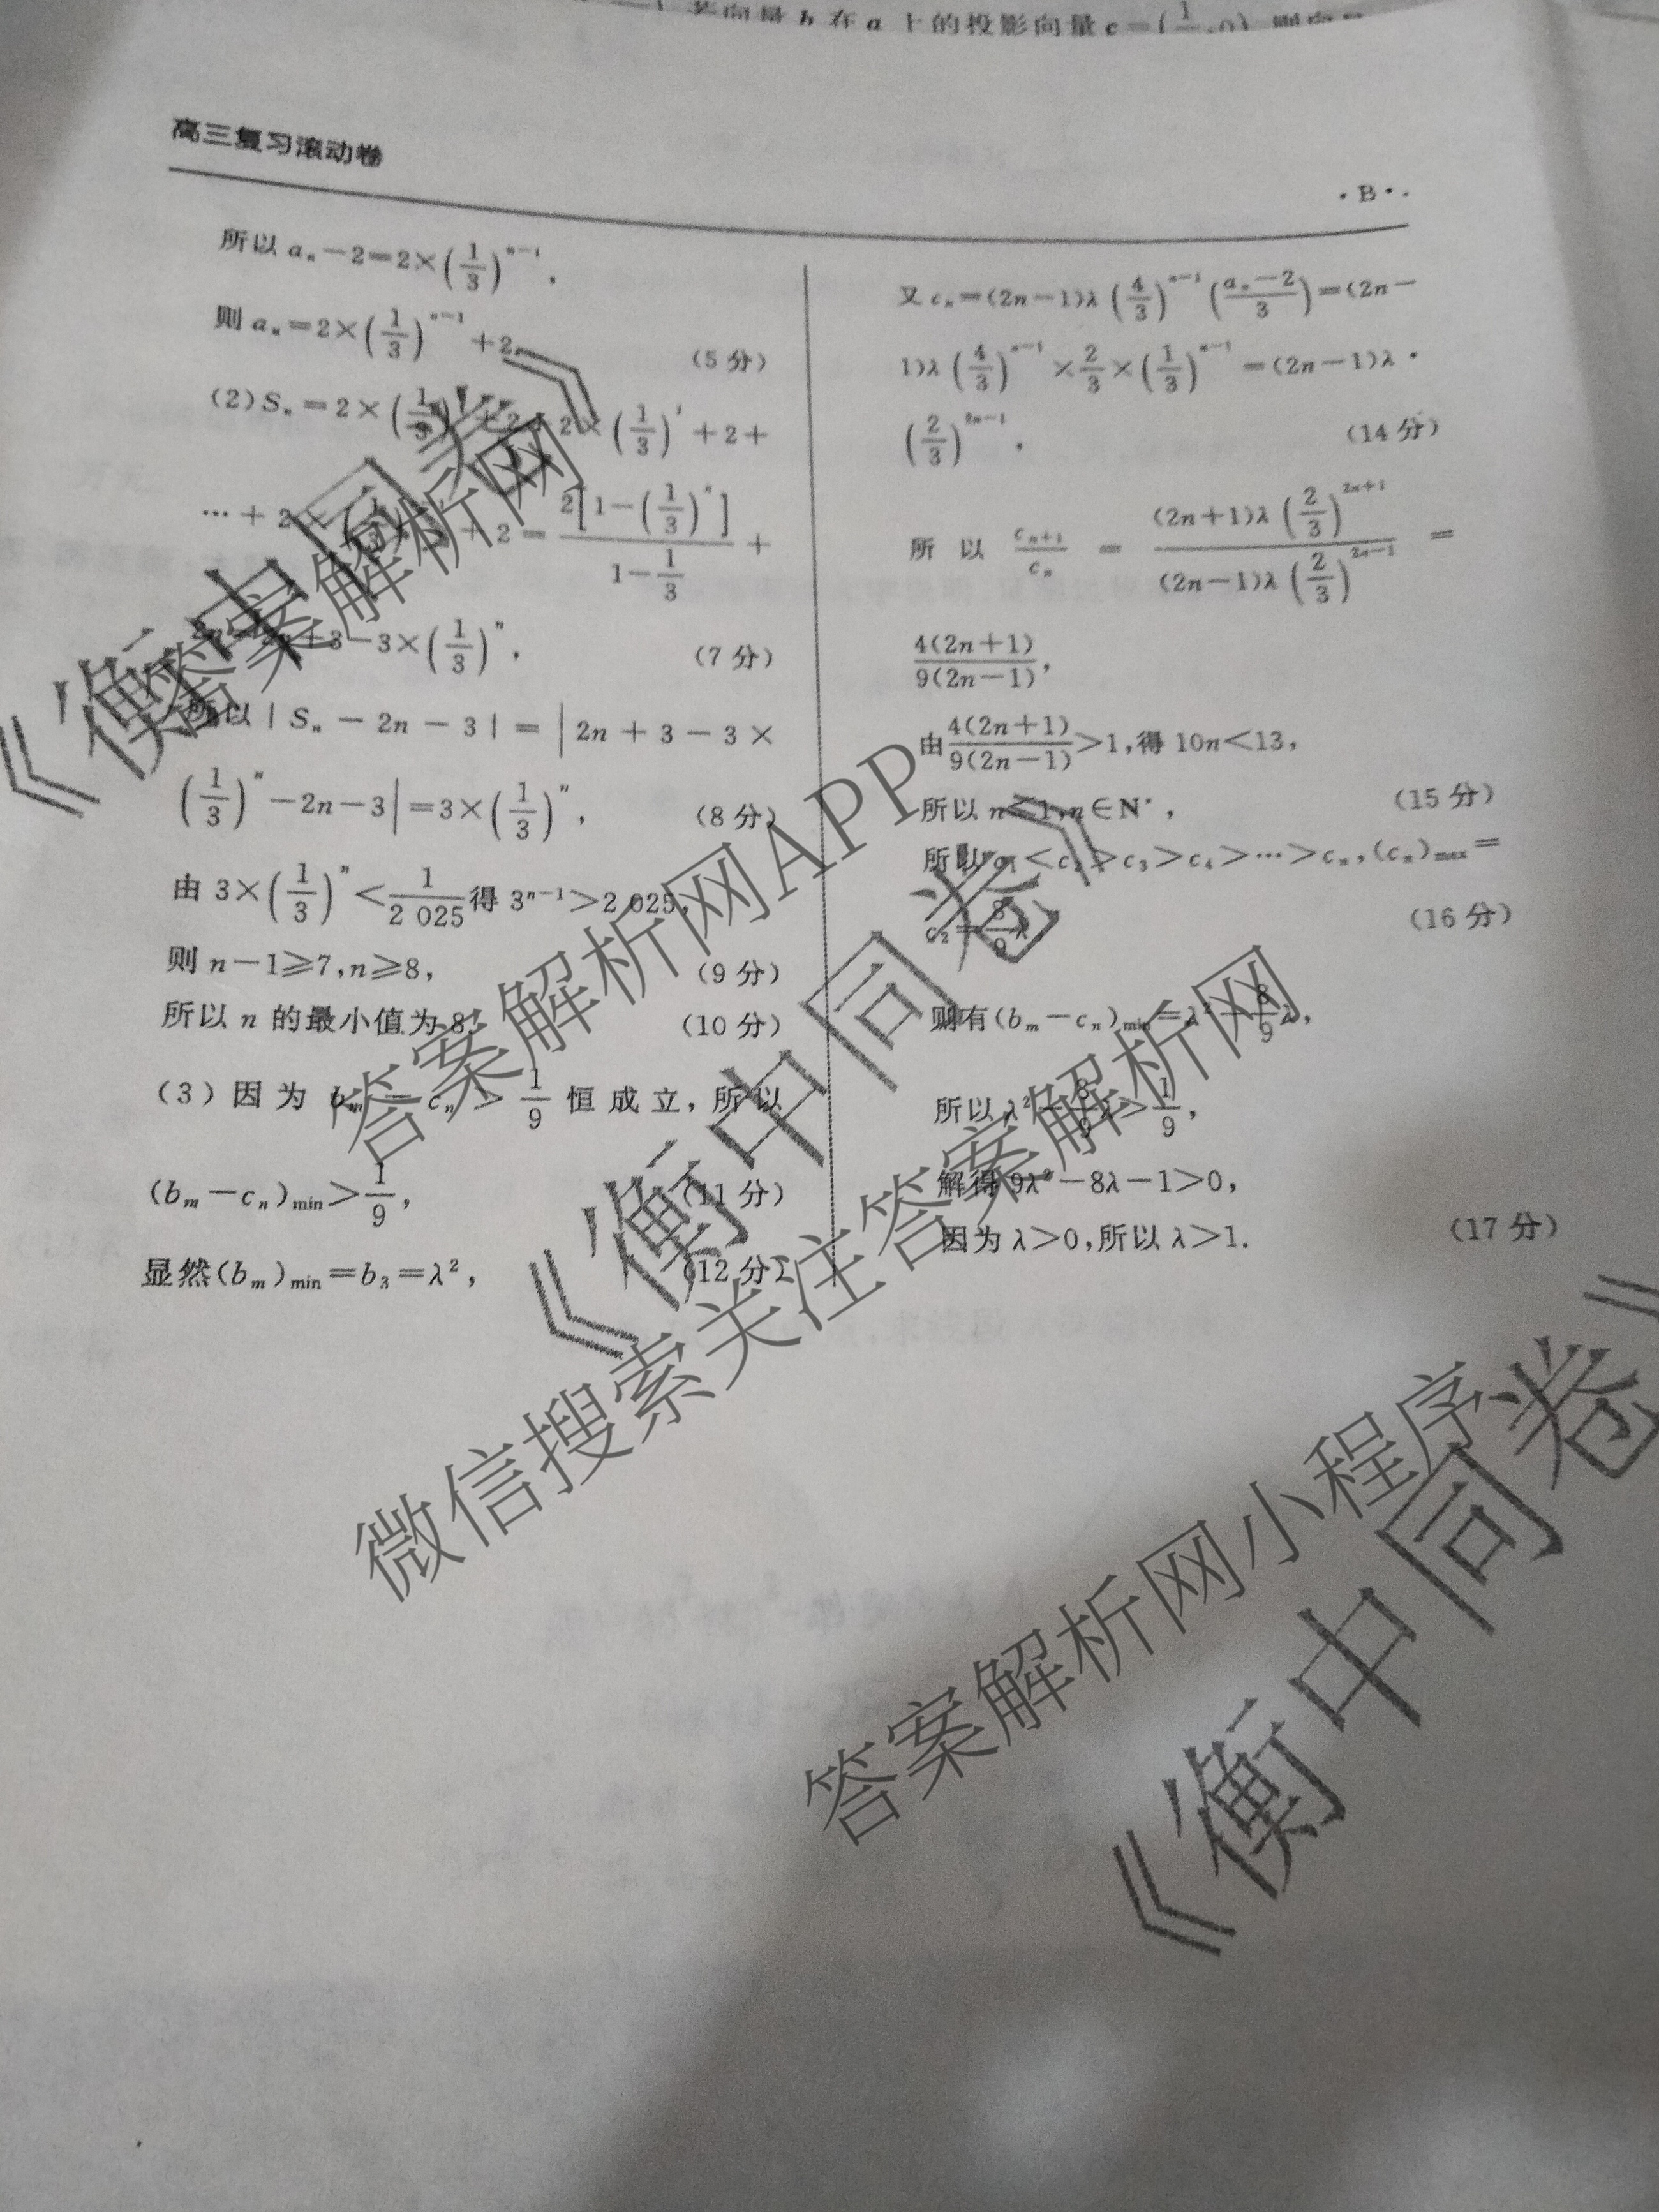 若向量 b 在 a 上的投影向量 c=(1/
高三复习滚动卷
·B·
所以 aₙ-2=2×(1/3)ⁿ⁻¹.
则 aₙ=2×(1/3)ⁿ⁻¹+2. (5 分)
(2)Sₙ=2×(1/3) +2+2×(1/3)¹+2+
…+2× +2=2[1-(1/3)ⁿ]/(1-1/3)+
2n=2n+3-3×(1/3)ⁿ, (7 分)
所以|Sₙ-2n-3|=|2n+3-3×
(1/3)ⁿ-2n-3|=3×(1/3)ⁿ, (8 分)
由 3×(1/3)ⁿ<1/2 025得 3ⁿ⁻¹>2 025,
则 n-1≥7,n≥8, (9 分)
所以 n 的最小值为 8. (10 分)
(3)因为 bₘ-cₙ>1/9 恒成立,所以
(bₘ-cₙ)min>1/9, (11 分)
显然(bₘ)min=b₃=λ², (12 分)
又 cₙ=(2n-1)λ(4/3)ⁿ⁻¹((aₙ-2)/3)=(2n-
1)λ(4/3)ⁿ⁻¹×2/3×(1/3)ⁿ⁻¹=(2n-1)λ·
(2/3)²ⁿ⁻¹, (14 分)
所以 cₙ₊₁/cₙ=(2n+1)λ(2/3)²ⁿ⁺¹/(2n-1)λ(2/3)²ⁿ⁻¹=
4(2n+1)/9(2n-1),
由4(2n+1)/9(2n-1)>1,得 10n<13,
所以 n≤1,n∈N*, (15 分)
所以 c₁<c₂>c₃>c₄>…>cₙ,(cₙ)max=
c₂=8/9λ, (16 分)
则有(bₘ-cₙ)min=λ²-8/9λ,
所以 λ²-8/9λ>1/9,
解得 9λ²-8λ-1>0,
因为 λ>0,所以 λ>1. (17 分)
《衡中同卷》
答案解析网
答案解析网APP
《衡中同卷》
微信搜索关注答案解析网
答案解析网小程序
《衡中同卷》